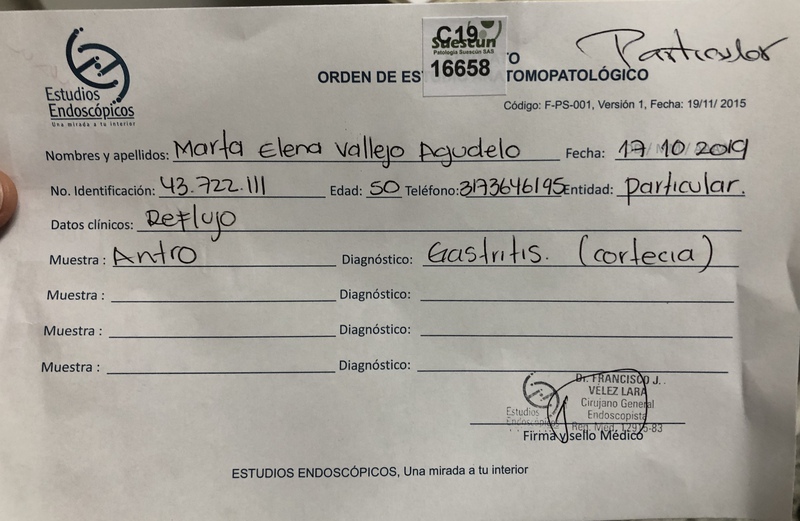 Estudios
Endoscópicos
Una mirada a tu interior
C19
Suescún
Patología Suescún SAS
16658
Particular
ORDEN DE ES TO
TOMOPATOLÓGICO
Código: F-PS-001, Versión 1, Fecha: 19/11/ 2015
Nombres y apellidos: Marta Elena Vallejo Agudelo Fecha: 17 10 2019
No. Identificación: 43.722.111 Edad: 50 Teléfono: 3173646195 Entidad: particular.
Datos clínicos: Reflujo
Muestra : Antro Diagnóstico: Gastritis. (cortecia)
Muestra : Diagnóstico:
Muestra : Diagnóstico:
Muestra : Diagnóstico:
Dr. FRANCISCO J.
VÉLEZ LARA
Cirujano General
Endoscopista
Reg. Med. 12915-83
Estudios
Endoscópicos
Firma y sello Médico
ESTUDIOS ENDOSCÓPICOS, Una mirada a tu interior